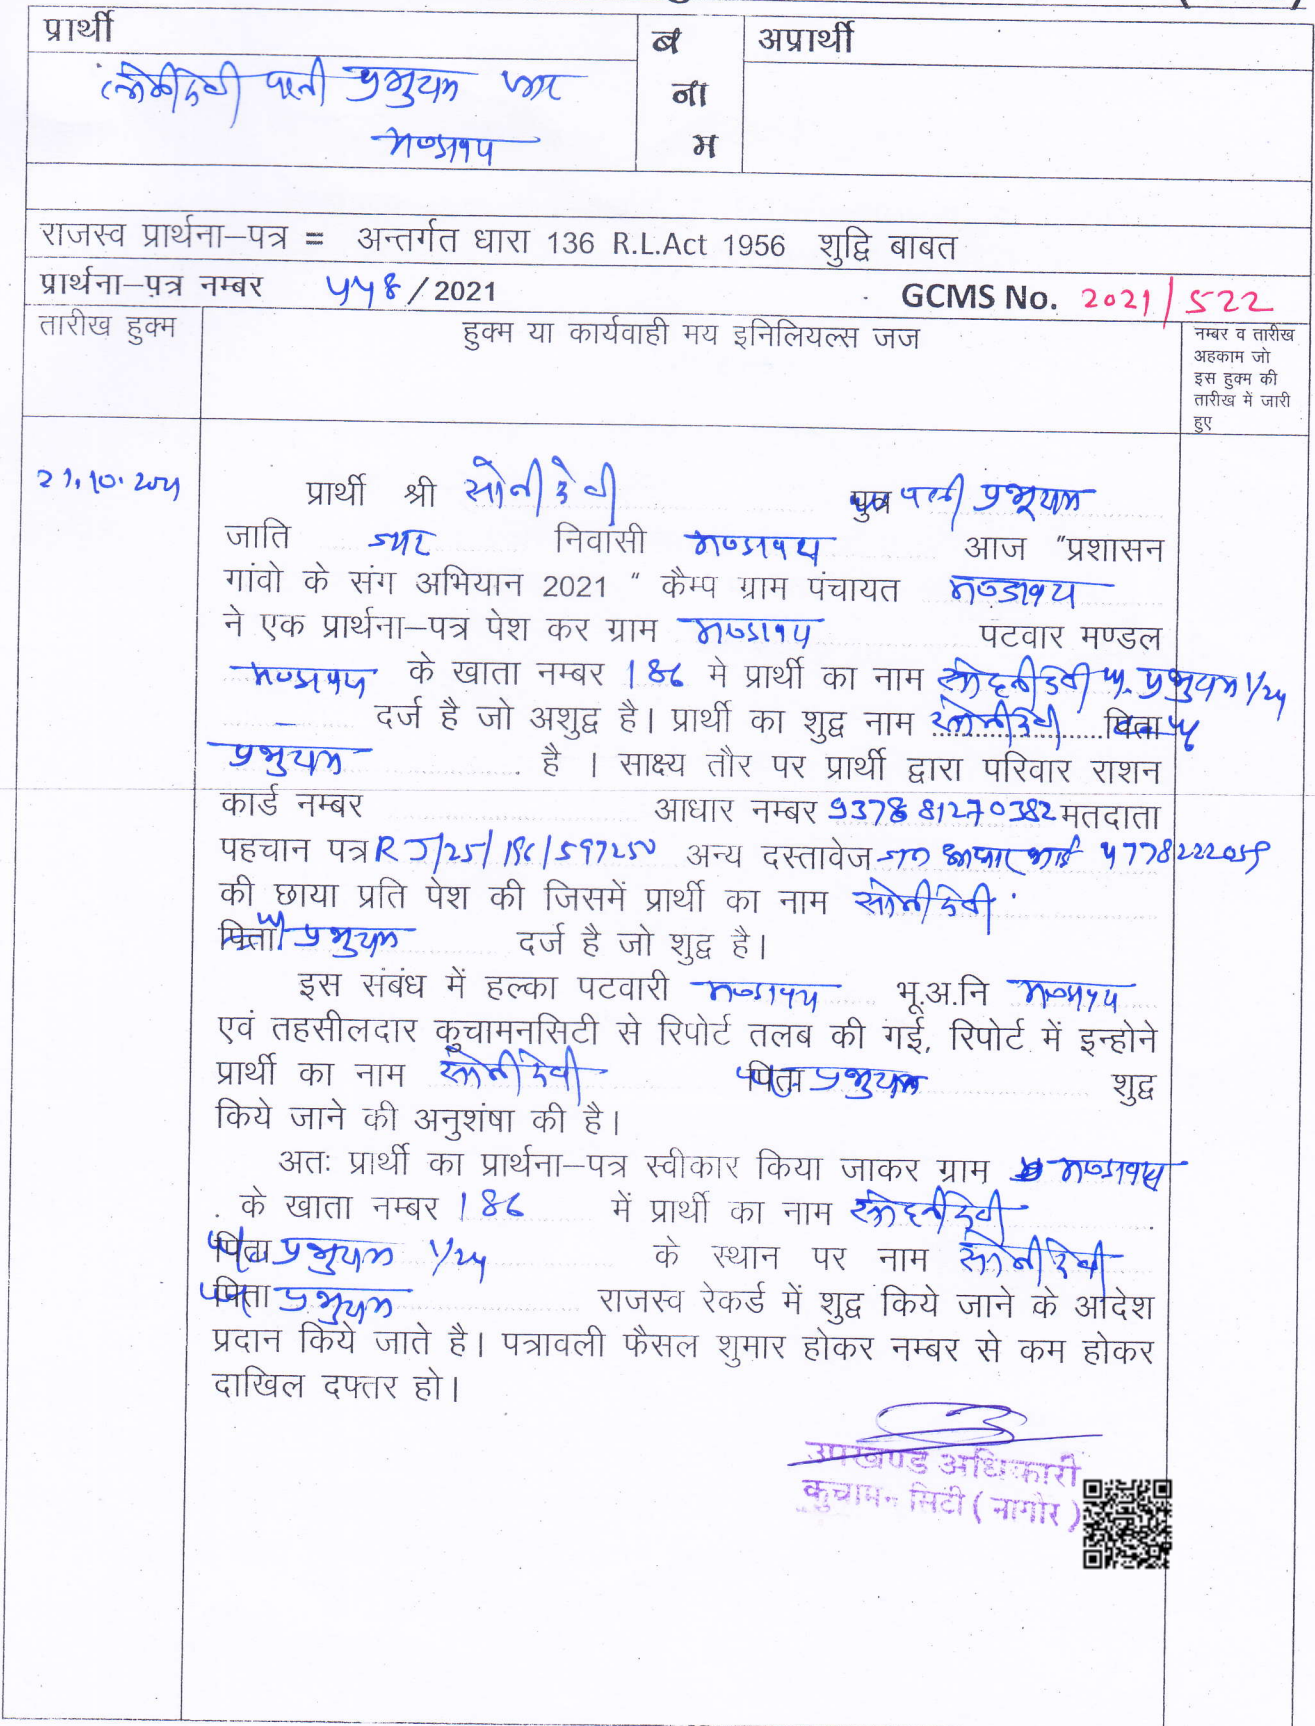 प्रार्थी
ब
ना
म
अप्रार्थी
पत्नी प्रभुराम जाट
मण्डावरा
राजस्व प्रार्थना–पत्र = अन्तर्गत धारा 136 R.L.Act 1956 शुद्वि बाबत
प्रार्थना–पत्र नम्बर 558/2021 GCMS No. 2021/522
तारीख हुक्म
हुक्म या कार्यवाही मय इनिलियल्स जज
नम्बर व तारीख
अहकाम जो
इस हुक्म की
तारीख में जारी
हुए
प्रार्थी श्री सोनी देवी पुत्र पत्नी प्रभुराम
जाति जाट निवासी मण्डावरा आज "प्रशासन
गांवो के संग अभियान 2021 " कैम्प ग्राम पंचायत मण्डावरा
ने एक प्रार्थना–पत्र पेश कर ग्राम मण्डावरा पटवार मण्डल
मण्डावरा के खाता नम्बर 186 मे प्रार्थी का नाम प्रभुराम 1/24
दर्ज है जो अशुद्व है। प्रार्थी का शुद्व नाम सोनीदेवी पिता
प्रभुराम है । साक्ष्य तौर पर प्रार्थी द्वारा परिवार राशन
कार्ड नम्बर आधार नम्बर 937881270382 मतदाता
पहचान पत्र RJ/25/186/597250 अन्य दस्तावेज
की छाया प्रति पेश की जिसमें प्रार्थी का नाम सोनीदेवी
पिता प्रभुराम दर्ज है जो शुद्व है।
इस संबंध में हल्का पटवारी मण्डावरा भू.अ.नि मण्डावरा
एवं तहसीलदार कुचामनसिटी से रिपोर्ट तलब की गई, रिपोर्ट में इन्होने
प्रार्थी का नाम सोनीदेवी पिता प्रभुराम शुद्व
किये जाने की अनुशंषा की है।
अतः प्रार्थी का प्रार्थना–पत्र स्वीकार किया जाकर ग्राम मण्डावरा
के खाता नम्बर 186 में प्रार्थी का नाम
पिता प्रभुराम 1/24 के स्थान पर नाम सोनीदेवी
पिता प्रभुराम राजस्व रेकर्ड में शुद्व किये जाने के आदेश
प्रदान किये जाते है। पत्रावली फैसल शुमार होकर नम्बर से कम होकर
दाखिल दफ्तर हो।
उपखण्ड अधिकारी
कुचामन सिटी ( नागौर )